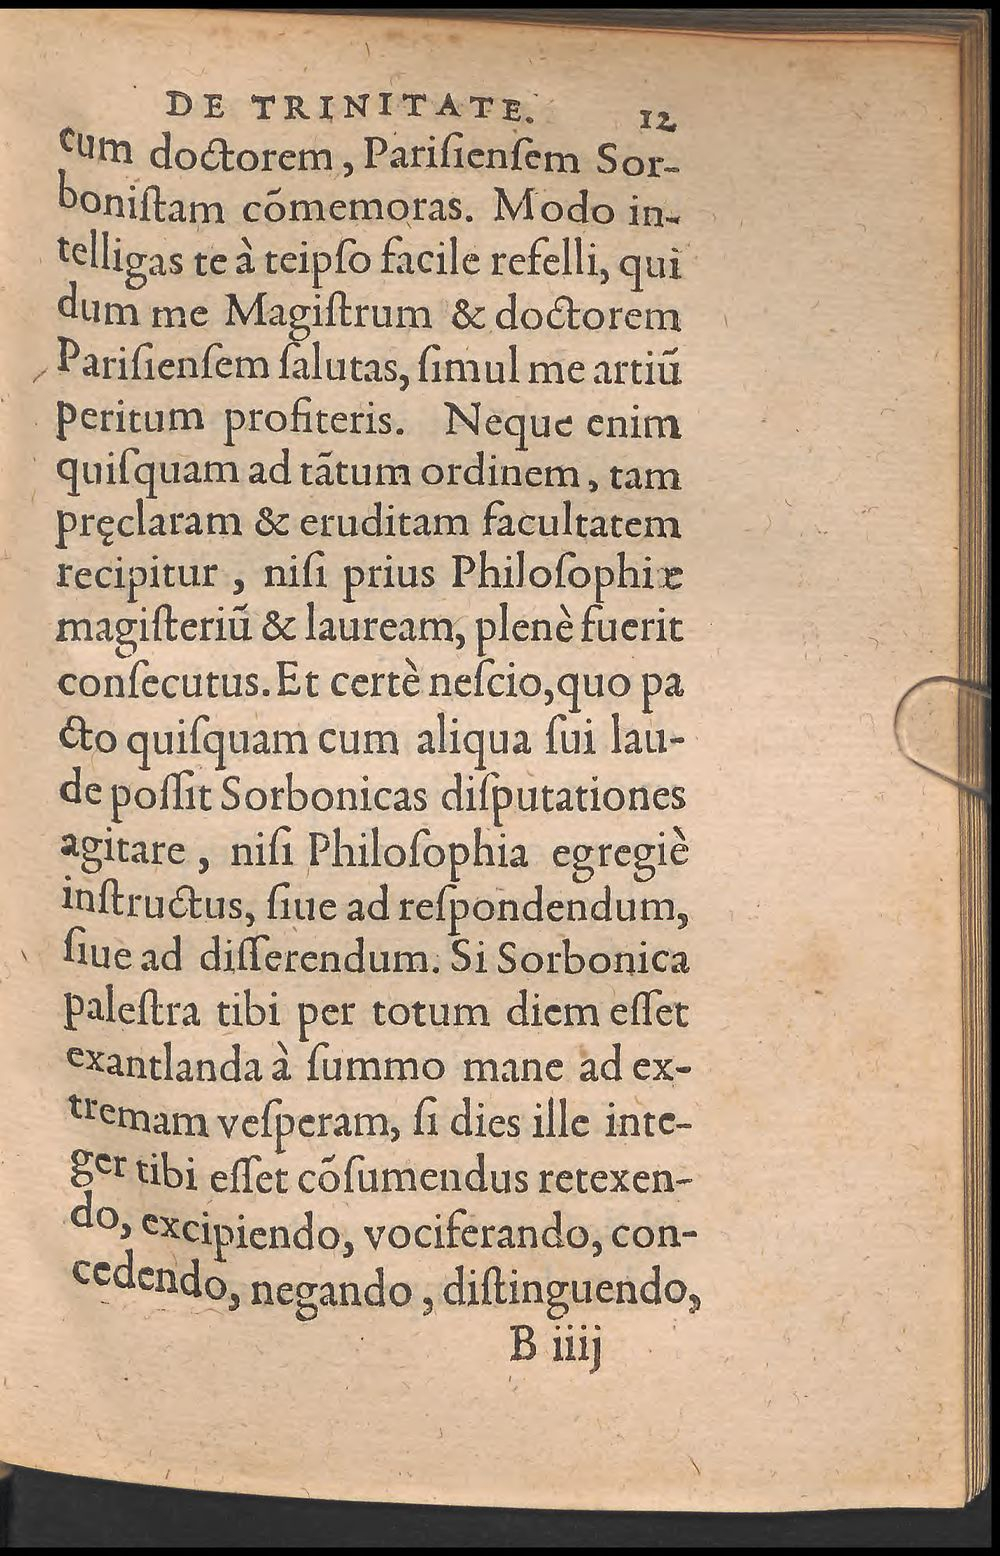 DE TRINITATE. 12
cum doctorem, Pariſienſem Sor-
boniſtam cõmemoras. Modo in-
telligas te à teipſo facile refelli, qui
dum me Magiſtrum & doctorem
Pariſienſem ſalutas, ſimul me artiũ
peritum profiteris. Neque enim
quiſquam ad tãtum ordinem, tam
pręclaram & eruditam facultatem
recipitur, niſi prius Philoſophiæ
magiſteriũ & lauream, plenè fuerit
conſecutus. Et certè neſcio, quo pa
cto quiſquam cum aliqua ſui lau-
de poſſit Sorbonicas diſputationes
agitare, niſi Philoſophia egregiè
inſtructus, ſiue ad reſpondendum,
ſiue ad diſſerendum. Si Sorbonica
paleſtra tibi per totum diem eſſet
exantlanda à ſummo mane ad ex-
tremam veſperam, ſi dies ille inte-
ger tibi eſſet cõſumendus retexen-
do, excipiendo, vociferando, con-
cedendo, negando, diſtinguendo,
B iiij